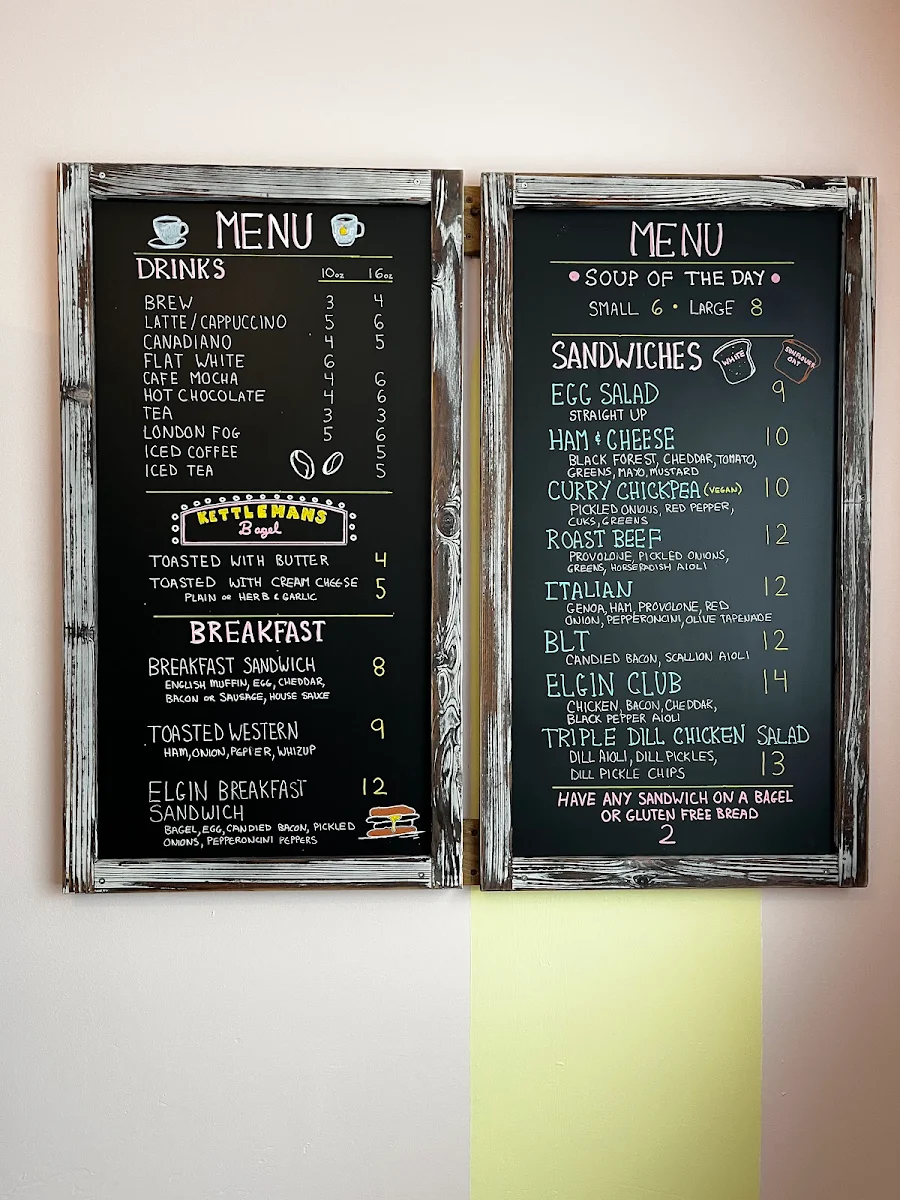 MENU
DRINKS 10oz 16oz
BREW 3 4
LATTE/CAPPUCCINO 5 6
CANADIANO 4 5
FLAT WHITE 6
CAFE MOCHA 4 6
HOT CHOCOLATE 4 6
TEA 3 3
LONDON FOG 5 6
ICED COFFEE 5
ICED TEA 5
KETTLEMANS
Bagel
TOASTED WITH BUTTER 4
TOASTED WITH CREAM CHEESE 5
PLAIN or HERB & GARLIC
BREAKFAST
BREAKFAST SANDWICH 8
ENGLISH MUFFIN, EGG, CHEDDAR,
BACON OR SAUSAGE, HOUSE SAUCE
TOASTED WESTERN 9
HAM, ONION, PEPPER, WHIZUP
ELGIN BREAKFAST 12
SANDWICH
BAGEL, EGG, CANDIED BACON, PICKLED
ONIONS, PEPPERONCINI PEPPERS
MENU
• SOUP OF THE DAY •
SMALL 6 • LARGE 8
SANDWICHES WHITE SUNFLOWER OAT
EGG SALAD 9
STRAIGHT UP
HAM & CHEESE 10
BLACK FOREST, CHEDDAR, TOMATO,
GREENS, MAYO, MUSTARD
CURRY CHICKPEA (VEGAN) 10
PICKLED ONIONS, RED PEPPER,
CUKS, GREENS
ROAST BEEF 12
PROVOLONE, PICKLED ONIONS,
GREENS, HORSERADISH AIOLI
ITALIAN 12
GENOA, HAM, PROVOLONE, RED
ONION, PEPPERONCINI, OLIVE TAPENADE
BLT 12
CANDIED BACON, SCALLION AIOLI
ELGIN CLUB 14
CHICKEN, BACON, CHEDDAR,
BLACK PEPPER AIOLI
TRIPLE DILL CHICKEN SALAD
DILL AIOLI, DILL PICKLES, 13
DILL PICKLE CHIPS
HAVE ANY SANDWICH ON A BAGEL
OR GLUTEN FREE BREAD
2